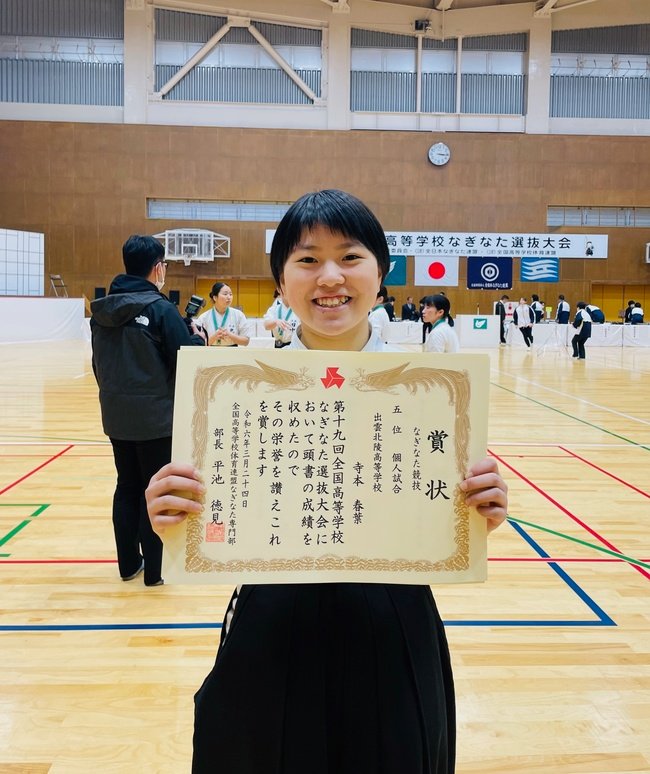 高等学校なぎなた選抜大会
賞状
なぎなた競技
五位 個人試合
出雲北陵高等学校
寺本 春葉
第十九回全国高等学校
なぎなた選抜大会に
おいて頭書の成績を
収めたので
その栄誉を讃えこれ
を賞します
令和六年三月二十四日
全国高等学校体育連盟なぎなた専門部
部長 平池 徳見